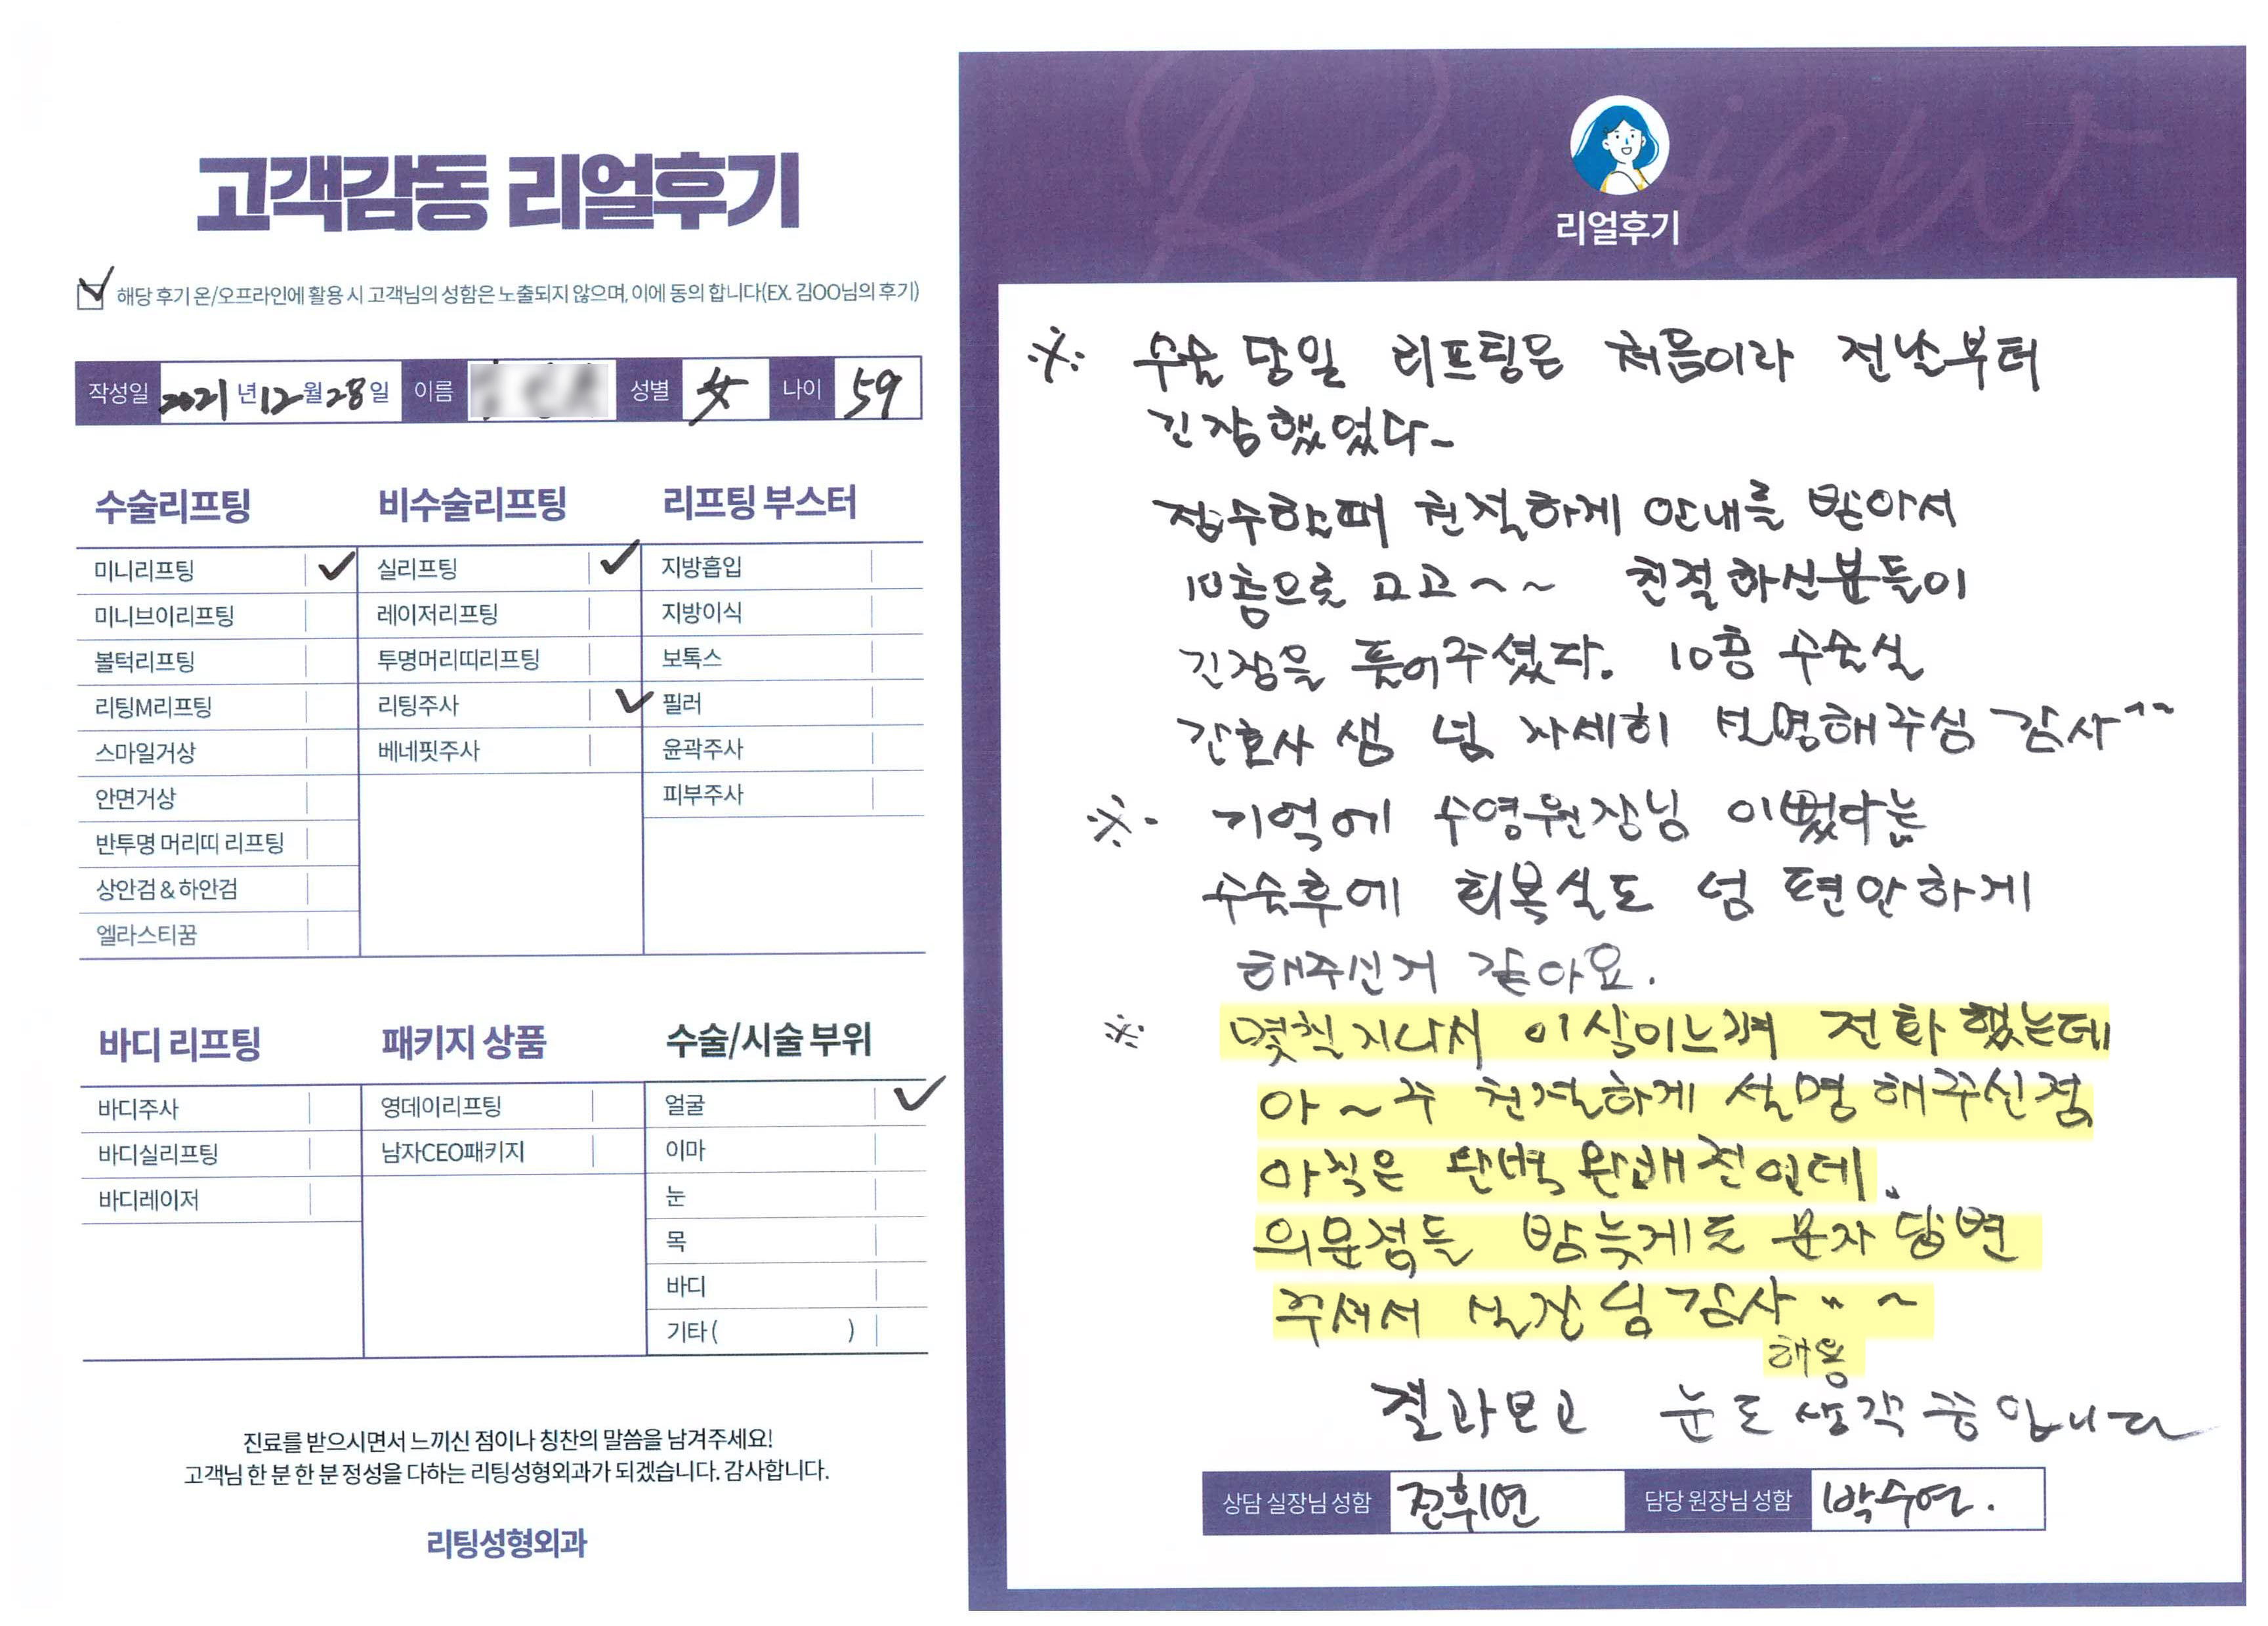 고객감동 리얼후기
해당 후기 온/오프라인에 활용 시 고객님의 성함은 노출되지 않으며, 이에 동의 합니다(EX. 김OO님의 후기)
작성일 2021년 12월 28일 이름 성별 女 나이 59
수술리프팅 비수술리프팅 리프팅 부스터
미니리프팅 실리프팅 지방흡입
미니브이리프팅 레이저리프팅 지방이식
볼턱리프팅 투명머리띠리프팅 보톡스
리팅M리프팅 리팅주사 필러
스마일거상 베네핏주사 윤곽주사
안면거상 피부주사
반투명 머리띠 리프팅
상안검 & 하안검
엘라스티꿈
바디 리프팅 패키지 상품 수술/시술 부위
바디주사 영데이리프팅 얼굴
바디실리프팅 남자CEO패키지 이마
바디레이저 눈
목
바디
기타 ( )
진료를 받으시면서 느끼신 점이나 칭찬의 말씀을 남겨주세요!
고객님 한 분 한 분 정성을 다하는 리팅성형외과가 되겠습니다. 감사합니다.
리팅성형외과
Review
리얼후기
※ 수술 당일 리프팅은 처음이라 전날부터
긴장했었다~
접수할때 친절하게 안내를 받아서
10층으로 고고~~ 친절하신분들이
긴장을 풀어주셨다. 10층 수술실
간호사 샘 넘 자세히 설명해주심 감사^^
※ 기억에 수영원장님 이뻤다는
수술후에 회복실도 넘 편안하게
해주신거 같아요.
※ 몇칠 지나서 이상이느껴 전화했는데
아~주 친절하게 설명해주신점
아직은 단벽 완배전인데.
의문점들 밤늦게도 문자 답변
주셔서 실장님 감사 〃 ~
해용
결과보고 눈도 생각중입니다
상담 실장님 성함 전휘연 담당 원장님 성함 박수영.